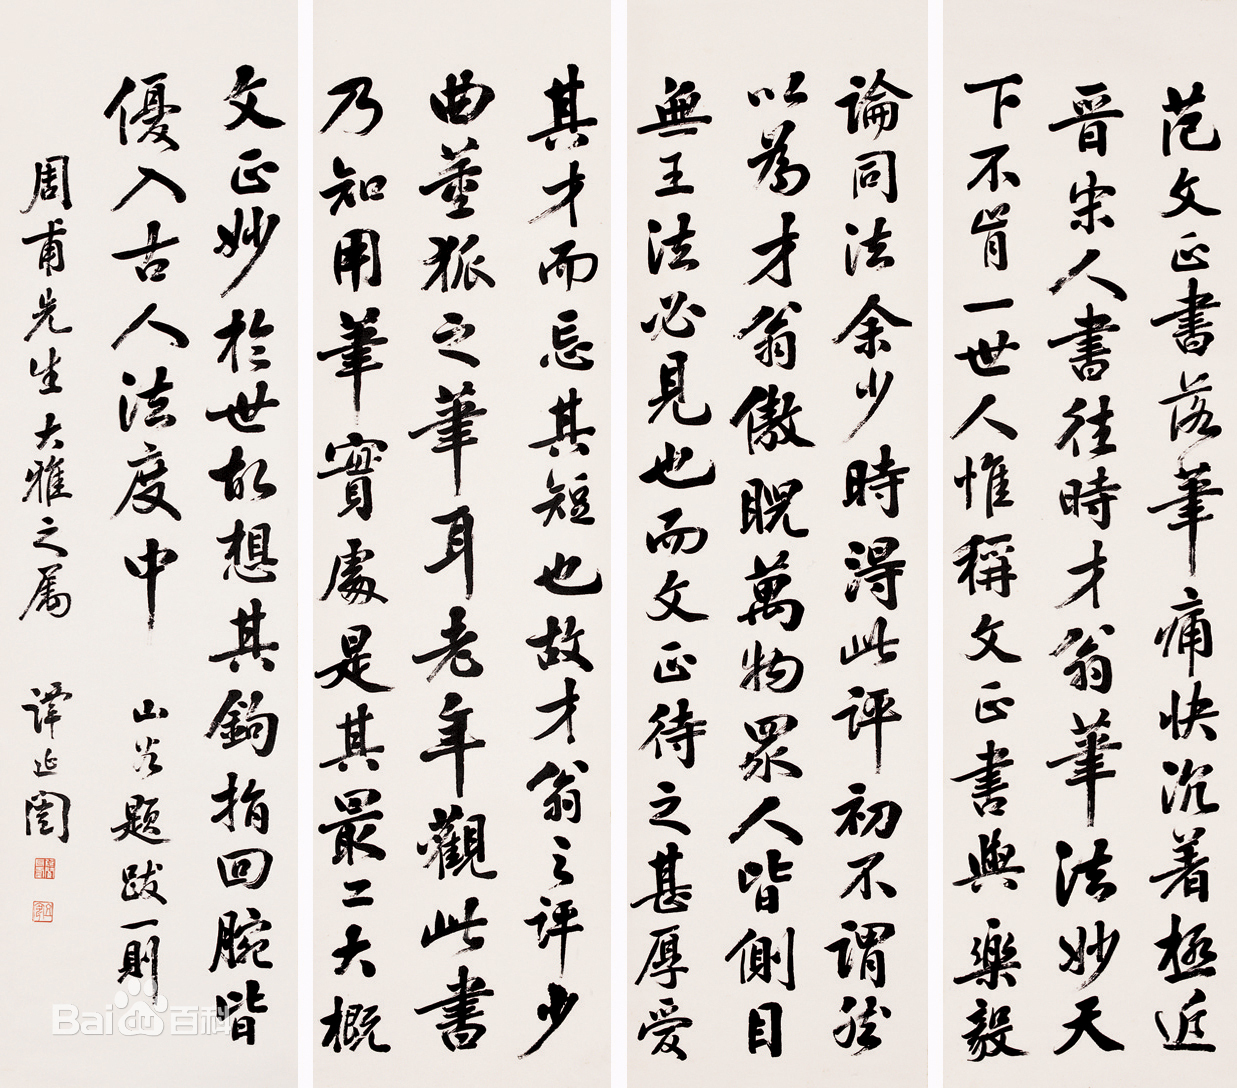 范文正書落筆痛快沉着極近
晋宋人書往時才翁筆法妙天
下不肯一世人惟稱文正書與樂毅
論同法余少時得此評初不謂然
以為才翁傲睨萬物眾人皆側目
無王法必見也而文正待之甚厚愛
其才而忘其短也故才翁之評少
曲董狐之筆耳老年觀此書
乃知用筆實處是其最工大概
文正妙於世故想其鉤指回腕皆
優入古人法度中
山谷題跋一則
周甫先生大雅之屬
譚延闓
Baidu百科